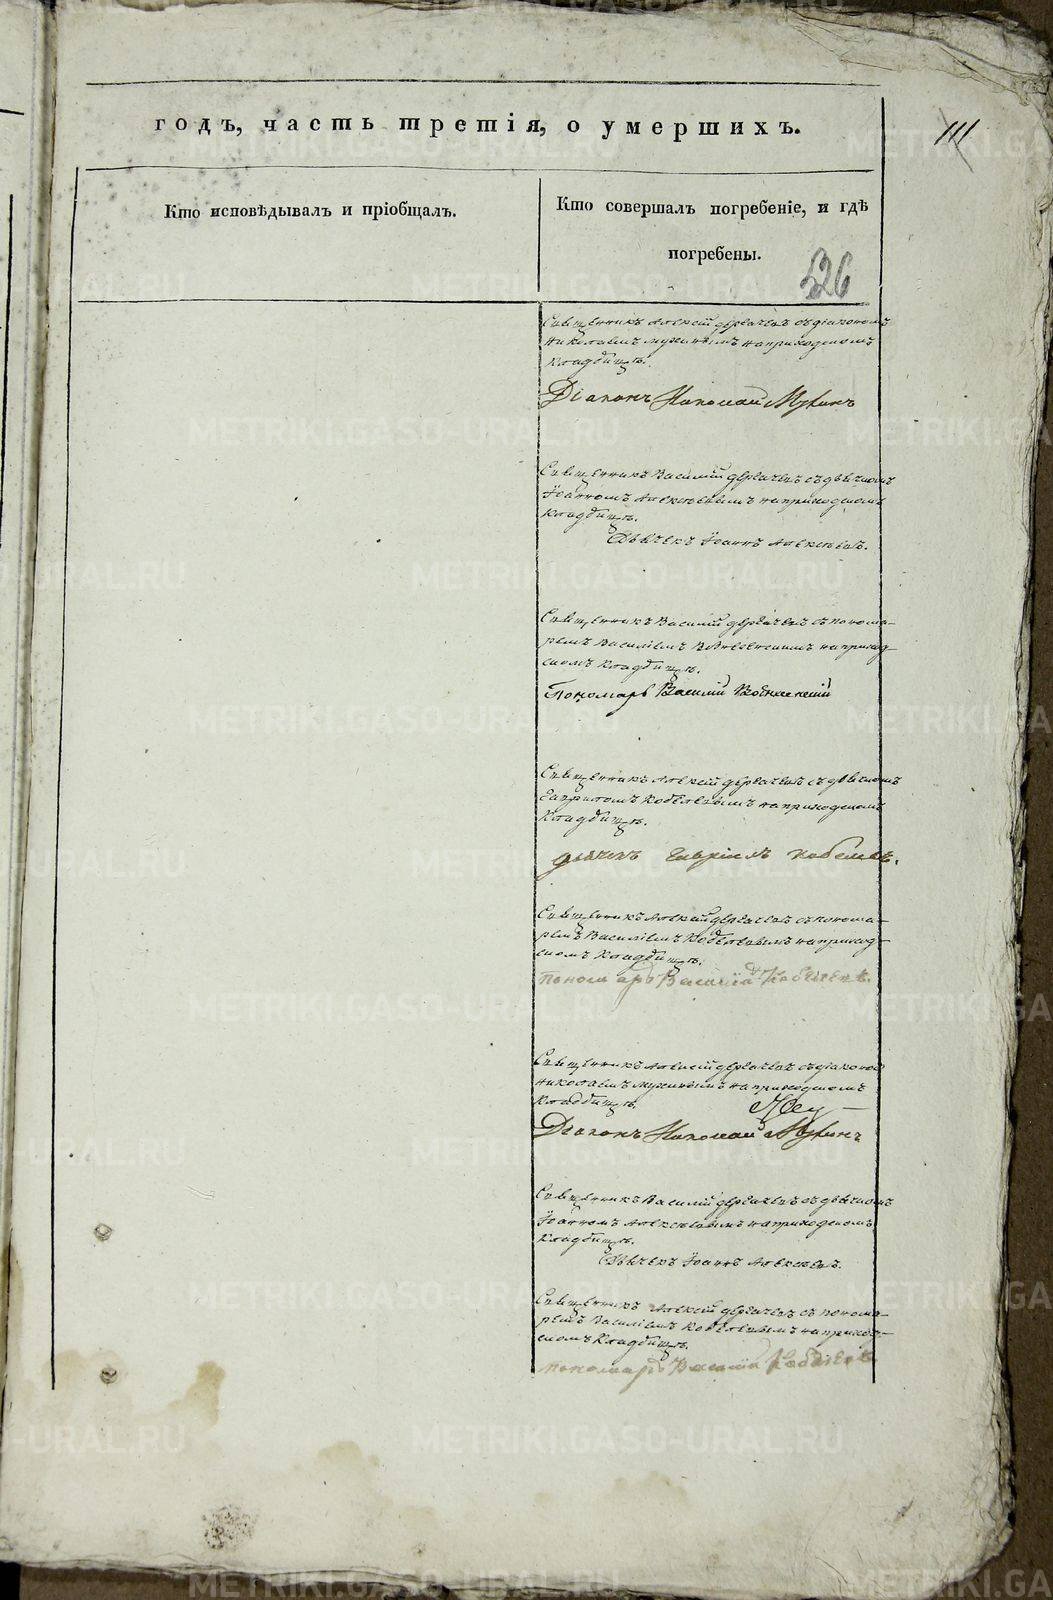 годъ, часть третія, о умершихъ.
111
Кто исповѣдывалъ и пріобщалъ.
Кто совершалъ погребеніе, и гдѣ
погребены.
526
Священникъ Алексій Дергачевъ съ діакономъ
Николаемъ Мухинымъ на приходскомъ
кладбищѣ.
Діаконъ Николай Мухинъ
Священникъ Василій Дергачевъ съ дьячкомъ
Іоанномъ Алексѣевымъ на приходскомъ
кладбищѣ.
Дьячекъ Іоаннъ Алексѣевъ.
Священникъ Василій Дергачевъ съ понома-
ремъ Василіемъ Вознесенскимъ на приход-
скомъ кладбищѣ.
Пономарь Василій Вознесенскій
Священникъ Алексій Дергачевъ съ дьячкомъ
Гавріиломъ Кобелевымъ на приходскомъ
кладбищѣ.
дьячекъ Гавріилъ Кобелевъ.
Священникъ Алексій Дергачевъ съ понома-
ремъ Василіемъ Кобелевымъ на приход-
скомъ кладбищѣ.
пономарь Василій Кобелевъ.
Священникъ Алексій Дергачевъ съ діакономъ
Николаемъ Мухинымъ на приходскомъ
кладбищѣ.
Діаконъ Николай Мухинъ
Священникъ Василій Дергачевъ съ дьячкомъ
Іоанномъ Алексѣевымъ на приходскомъ
кладбищѣ.
Дьячекъ Іоаннъ Алексѣевъ.
Священникъ Алексій Дергачевъ съ понома-
ремъ Василіемъ Кобелевымъ на приход-
скомъ кладбищѣ.
пономарь Василій Кобелевъ
METRIKI.GASO-URAL.RU